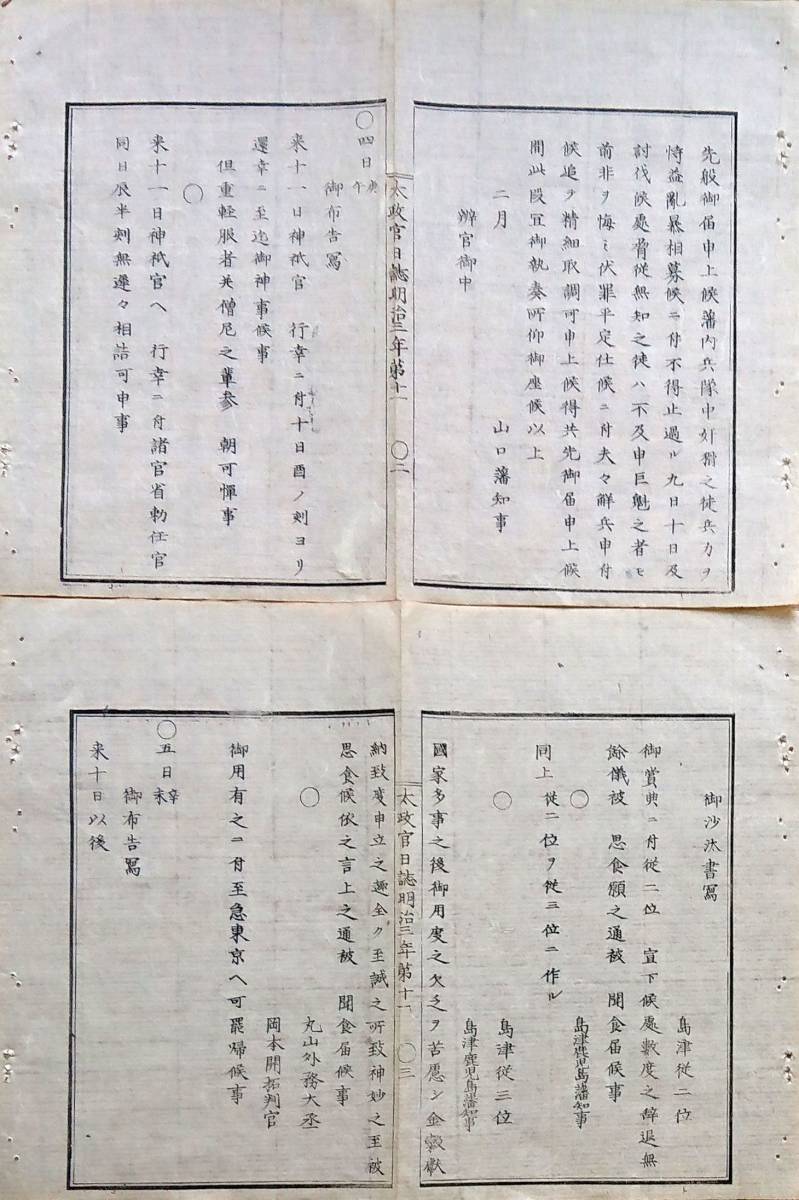 先般御届申上候藩内兵隊中奸猾之徒兵力ヲ
恃益亂暴相募候ニ付不得止過ル九日十日及
討伐候處脅從無知之徒ハ不及申巨魁之者モ
前非ヲ悔ミ伏罪平定仕候ニ付夫々解兵申付
候追テ精細取調可申上候得共先御届申上候
間此段宜御執奏所仰御座候以上
二月　山口藩知事
辨官御中
太政官日誌明治三年第十一　〇二
〇四日庚午
御布告寫
来十一日神祇官　行幸ニ付十日酉ノ刻ヨリ
還幸ニ至迄御神事候事
但重軽服者并僧尼之輩参　朝可憚事
〇
来十一日神祇官ヘ　行幸ニ付諸官省勅任官
同日辰半刻無遲々相詰可申事
御沙汰書寫
島津從二位
御賞典ニ付從二位　宣下候處數度之辞退無
餘儀被　思食願之通被　聞食届候事
〇　島津鹿児島藩知事
同上　從二位ヲ從三位ニ作ル
〇　島津從三位
島津鹿児島藩知事
國家多事之後御用度之欠乏ヲ苦慮シ金穀獻
納致度申立之趣全ク至誠之所致神妙之至被
思食候依之言上之通被　聞食届候事
〇　丸山外務大丞
岡本開拓判官
御用有之ニ付至急東京ヘ可罷帰候事
太政官日誌明治三年第十一　〇三
〇五日辛未
御布告寫
来十日以後